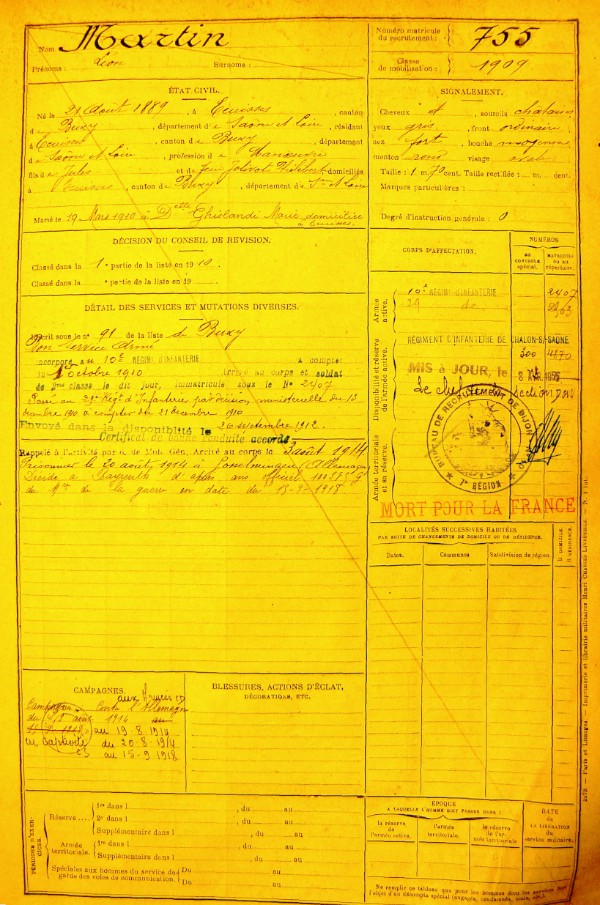 Nom : Martin
Prénoms : Léon Surnoms :
Numéro matricule du recrutement : 755
Classe de mobilisation : 1909
ÉTAT CIVIL.
Né le 31 Août 1889, à Ecuisses, canton
d de Buxy, département de Saône et Loire, résidant
à Ecuisses, canton de Buxy, département
d Saône et Loire, profession de
fils de Jules et de domiciliés
à Ecuisses, canton de Buxy, département de Sne et Loire
Marié le 19 Mars 1910 à Delle Ghislandi Marie domiciliée
à Ecuisses
SIGNALEMENT.
Cheveux et sourcils chatains
yeux gris, front ordinaire
nez fort, bouche moyenne
menton rond visage ovale
Taille : 1 m. 70 cent. Taille rectifiée : m. cent.
Marques particulières :
Degré d'instruction générale : 0
DÉCISION DU CONSEIL DE REVISION.
Classé dans la 1e partie de la liste en 1910.
Classé dans la partie de la liste en 19
DÉTAIL DES SERVICES ET MUTATIONS DIVERSES.
Inscrit sous le n° 91 de la liste de Buxy
Bon Service Armé
Incorporé au 10e RÉGIMENT D'INFANTERIE à compter
du 1er octobre 1910 Arrivé au corps et soldat
de 2me classe le dit jour, immatriculé sous le No 2407
Passé au 29e Régt d'Infanterie par décision ministérielle du 13
décembre 1910 à compter du 21 décembre 1910
Envoyé dans la disponibilité le 26 septembre 1912.
Certificat de bonne conduite accordé.
Rappelé à l'activité par o. de Mob. Gén. Arrivé au corps le 3 août 1914
Prisonnier le 20 août 1914 à (Allemagne)
Décédé à d'après avis officiel
du Mre de la guerre en date du
CORPS D'AFFECTATION.
NUMÉROS
AU CONTROLE SPÉCIAL.
MATRICULE OU AU RÉPERTOIRE.
Armée active.
10e RÉGIMENT D'INFANTERIE 2407
29 do
Disponibilité et réserve de l'armée active.
RÉGIMENT D'INFANTERIE DE CHALON-S-SAONE
300
MIS à JOUR, le
BUREAU DE RECRUTEMENT DE DIJON
7e RÉGION
Armée territoriale et sa réserve.
MORT POUR LA FRANCE
LOCALITÉS SUCCESSIVES HABITÉES
PAR SUITE DE CHANGEMENTS DE DOMICILE OU DE RÉSIDENCE.
Dates. Communes Subdivision de région. D. DOMICILE. R. RÉSIDENCE.
CAMPAGNES.
aux Armées
Campagne Contre l'Allemagne
du août 1914 au
au 19-8-1914
en Captivité du 20-8-1914
au 15-9-1918
BLESSURES, ACTIONS D'ÉCLAT,
DÉCORATIONS, ETC.
PÉRIODES D'EXERCICES.
Réserve 1re dans l , du au
2e dans l , du au
Supplémentaire dans l , du au
Armée territoriale. 1re dans l , du au
Supplémentaire dans l , du au
Spéciales aux hommes du service de garde des voies de communication. Du au
Du au
ÉPOQUE
A LAQUELLE L'HOMME DOIT PASSER DANS :
la réserve de l'armée active.
l'armée territoriale.
la réserve de l'armée territoriale
DATE
de LA LIBÉRATION du service militaire.
Ne remplir ce tableau que pour les hommes dont les services font l'objet d'un décompte spécial (engagés, condamnés, omis, etc.).
Paris et Limoges. — Imprimerie et librairie militaires Henri Charles-Lavauzelle.